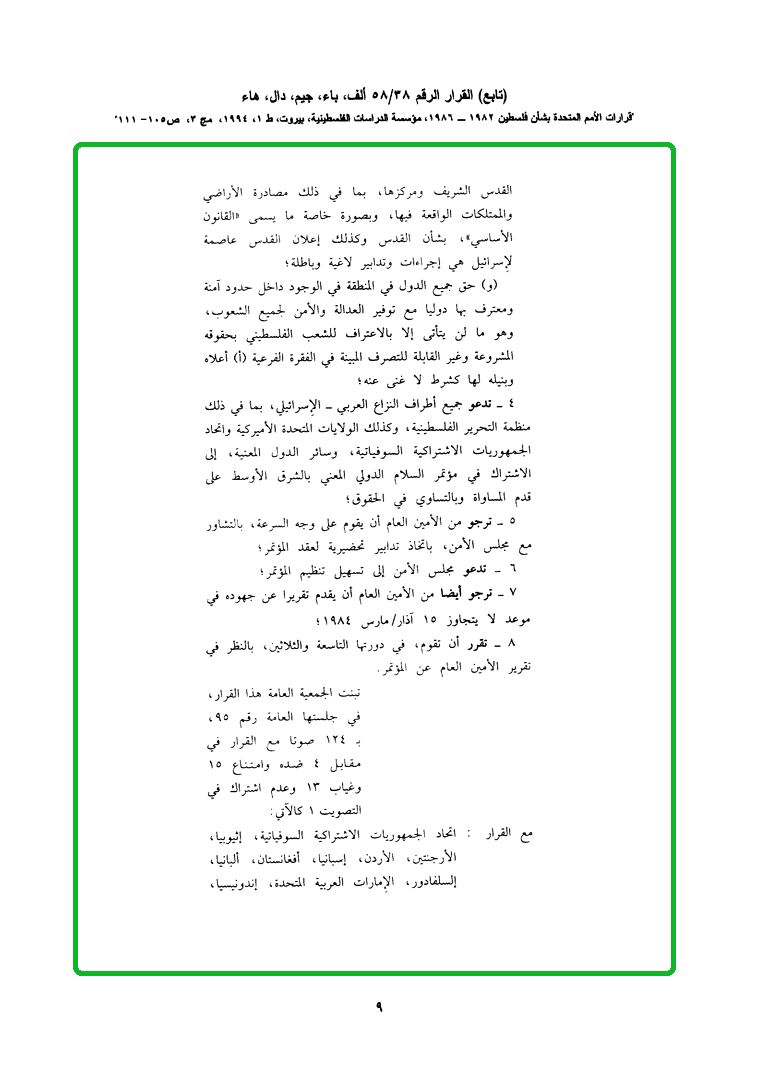 (تابع) القرار الرقم ٥٨/٣٨ ألف، باء، جيم، دال، هاء
"قرارات الأمم المتحدة بشأن فلسطين ١٩٨٢ ـ ١٩٨٦، مؤسسة الدراسات الفلسطينية، بيروت، ط ١، ١٩٩٤، مج ٣، ص١٠٥- ١١١"
القدس الشريف ومركزها، بما في ذلك مصادرة الأراضي
والممتلكات الواقعة فيها، وبصورة خاصة ما يسمى «القانون
الأساسي»، بشأن القدس وكذلك إعلان القدس عاصمة
لإسرائيل هي إجراءات وتدابير لاغية وباطلة؛
(و) حق جميع الدول في المنطقة في الوجود داخل حدود آمنة
ومعترف بها دوليا مع توفير العدالة والأمن لجميع الشعوب،
وهو ما لن يتأتى إلا بالاعتراف للشعب الفلسطيني بحقوقه
المشروعة وغير القابلة للتصرف المبينة في الفقرة الفرعية (أ) أعلاه
وبنيله لها كشرط لا غنى عنه؛
٤ ـ تدعو جميع أطراف النزاع العربي ـ الإسرائيلي، بما في ذلك
منظمة التحرير الفلسطينية، وكذلك الولايات المتحدة الأميركية واتحاد
الجمهوريات الاشتراكية السوفياتية، وسائر الدول المعنية، إلى
الاشتراك في مؤتمر السلام الدولي المعني بالشرق الأوسط على
قدم المساواة وبالتساوي في الحقوق؛
٥ ـ ترجو من الأمين العام أن يقوم على وجه السرعة، بالتشاور
مع مجلس الأمن، باتخاذ تدابير تحضيرية لعقد المؤتمر؛
٦ ـ تدعو مجلس الأمن إلى تسهيل تنظيم المؤتمر؛
٧ ـ ترجو أيضا من الأمين العام أن يقدم تقريرا عن جهوده في
موعد لا يتجاوز ١٥ آذار/مارس ١٩٨٤؛
٨ ـ تقرر أن تقوم، في دورتها التاسعة والثلاثين، بالنظر في
تقرير الأمين العام عن المؤتمر.
تبنت الجمعية العامة هذا القرار،
في جلستها العامة رقم ٩٥،
بـ ١٢٤ صوتا مع القرار في
مقابل ٤ ضده وامتناع ١٥
وغياب ١٣ وعدم اشتراك في
التصويت ١ كالآتي:
مع القرار : اتحاد الجمهوريات الاشتراكية السوفياتية، إثيوبيا،
الأرجنتين، الأردن، إسبانيا، أفغانستان، ألبانيا،
إلسلفادور، الإمارات العربية المتحدة، إندونيسيا،
٩